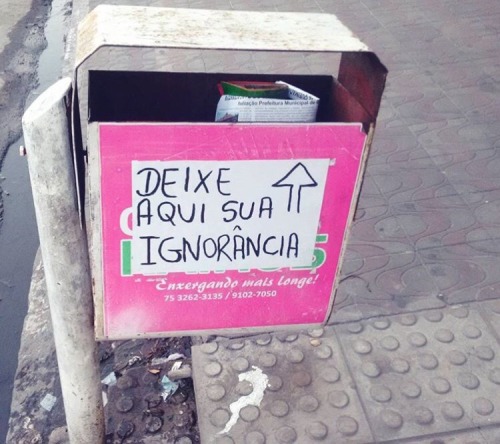 Prefeitura Municipal de
DEIXE
AQUI SUA
IGNORÂNCIA
Enxergando mais longe!
75 3262-3135 / 9102-7050